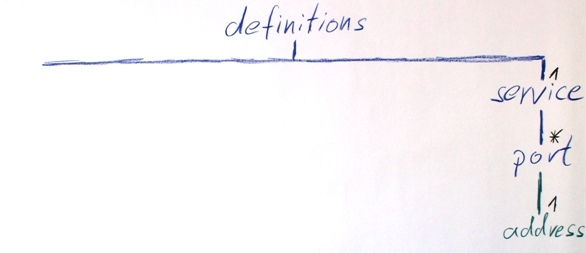 definitions
1
service
*
port
1
address